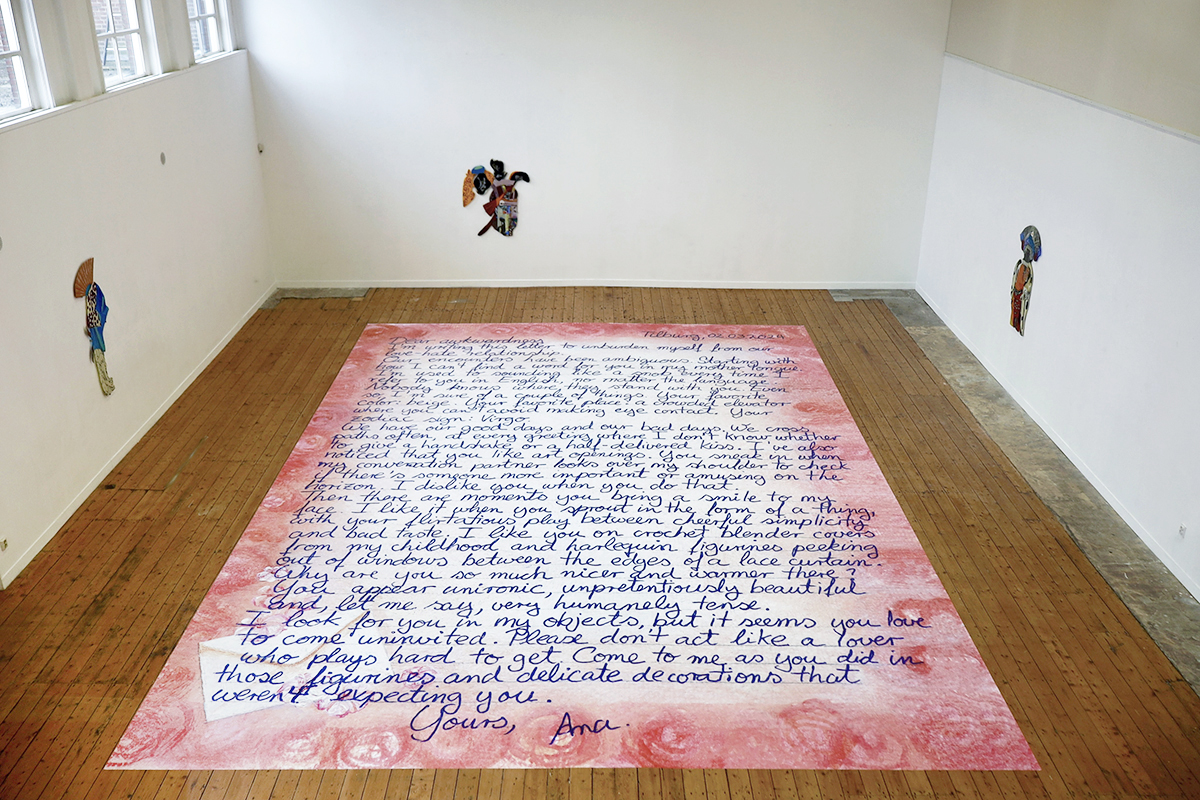 Tilburg, 02.03.2024
Dear awkwardness,
I'm writing this letter to unburden myself from our
love-hate relationship.
Our encounters have been ambiguous. Starting with
how I can't find a word for you in my mother tongue.
I'm used to sounding like a snob every time I
refer to you in English, nor matter the language.
Nobody knows where they stand with you. Even
so, I'm sure of a couple of things. Your favorite
color: beige. Your favorite place: a crowded elevator
where you can't avoid making eye contact. Your
zodiac sign: Virgo.
We have our good days and our bad days. We cross
paths often, at every greeting where I don't know whether
to give a handshake or a half-delivered kiss. I've also
noticed that you like art openings. You sneak in when
my conversation partner looks over my shoulder to check
if there's someone more important or amusing on the
horizon. I dislike you when you do that.
Then there are moments you bring a smile to my
face. I like it when you sprout in the form of a thing,
with your flirtatious play between cheerful simplicity
and bad taste. I like you on crochet blender covers
from my childhood and harlequin figurines peeking
out of windows between the edges of a lace curtain.
Why are you so much nicer and warmer there?
You appear unironic, unpretentiously beautiful
and, let me say, very humanely tense.
I look for you in my objects, but it seems you love
to come uninvited. Please don't act like a lover
who plays hard to get. Come to me as you did in
those figurines and delicate decorations that
weren't expecting you.
Yours, Ana.